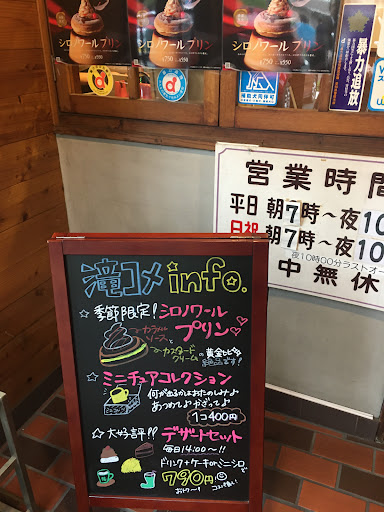 シロノワール プリン
¥750 ¥550
シロノワール プリン
¥750 ¥550
シロノワール プリン
¥750 ¥550
暴力追放
営業時間
平日 朝7時～夜10
日祝 朝7時～夜10
夜10時00分ラストオー
中無休
滝コメ info.
☆季節限定! シロノワール
プリン♡
カラメル
ソースと
カスタード
クリームの黄金比が
絶品です!
☆ミニチュアコレクション
何が出るかはおたのしみ♪
あつめて♪かざって♪
1コ400円
☆大好評!! デザートセット
毎日14:00～!!
ドリンク+ケーキorミニシロで
790円